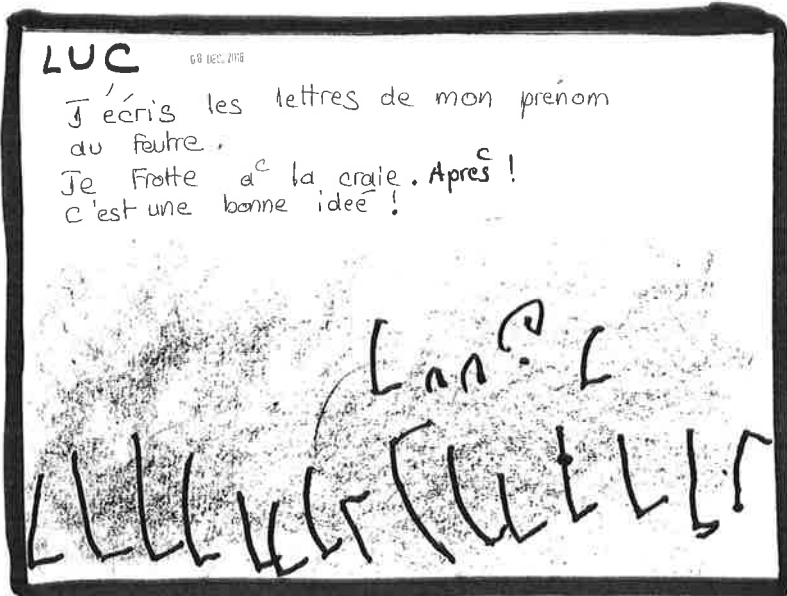 LUC
08 DEC. 2016
J'écris les lettres de mon prénom
au feutre.
Je Frotte à la craie. Après !
C'est une bonne ideé !